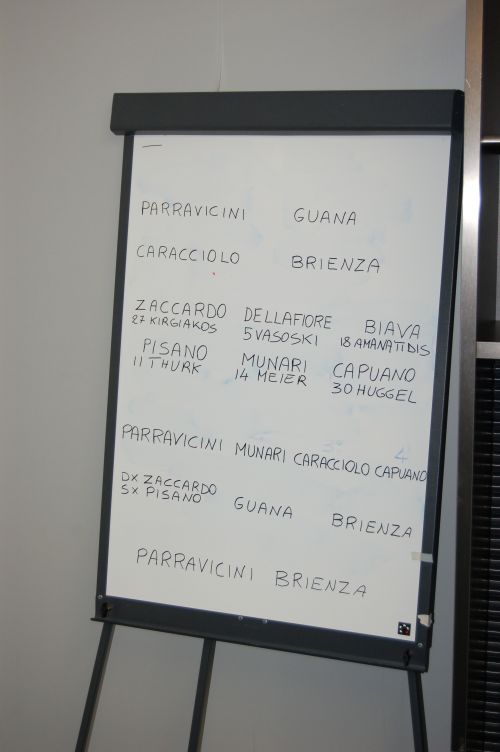 PARRAVICINI GUANA
CARACCIOLO BRIENZA
ZACCARDO DELLAFIORE BIAVA
27 KIRGIAKOS 5 VASOSKI 18 AMANATIDIS
PISANO MUNARI CAPUANO
11 THURK 14 MEIER 30 HUGGEL
PARRAVICINI MUNARI CARACCIOLO CAPUANO
DX ZACCARDO
SX PISANO GUANA BRIENZA
PARRAVICINI BRIENZA